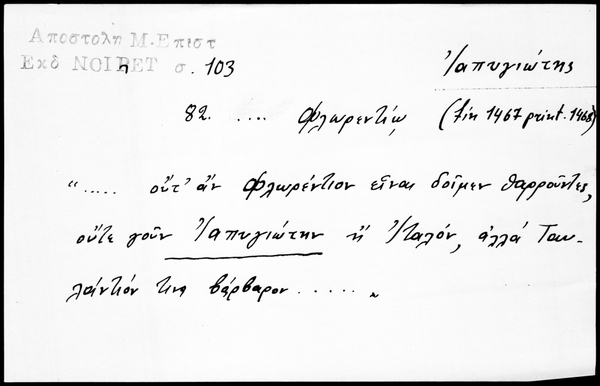 Αποστολη Μ. Επιστ
Εκδ NOIRET σ. 103
Ἰαπυγιώτης
82. .... Φλωρεντίῳ (fin 1467 print. 1468)
"..... οὔτ' ἂν Φλωρέντιον εἶναι δοῖμεν θαρροῦντες,
οὔτε γοῦν Ἰαπυγιώτην ἢ Ἰταλόν, ἀλλά Ταυ-
λάντιόν τινα βάρβαρον ..... „